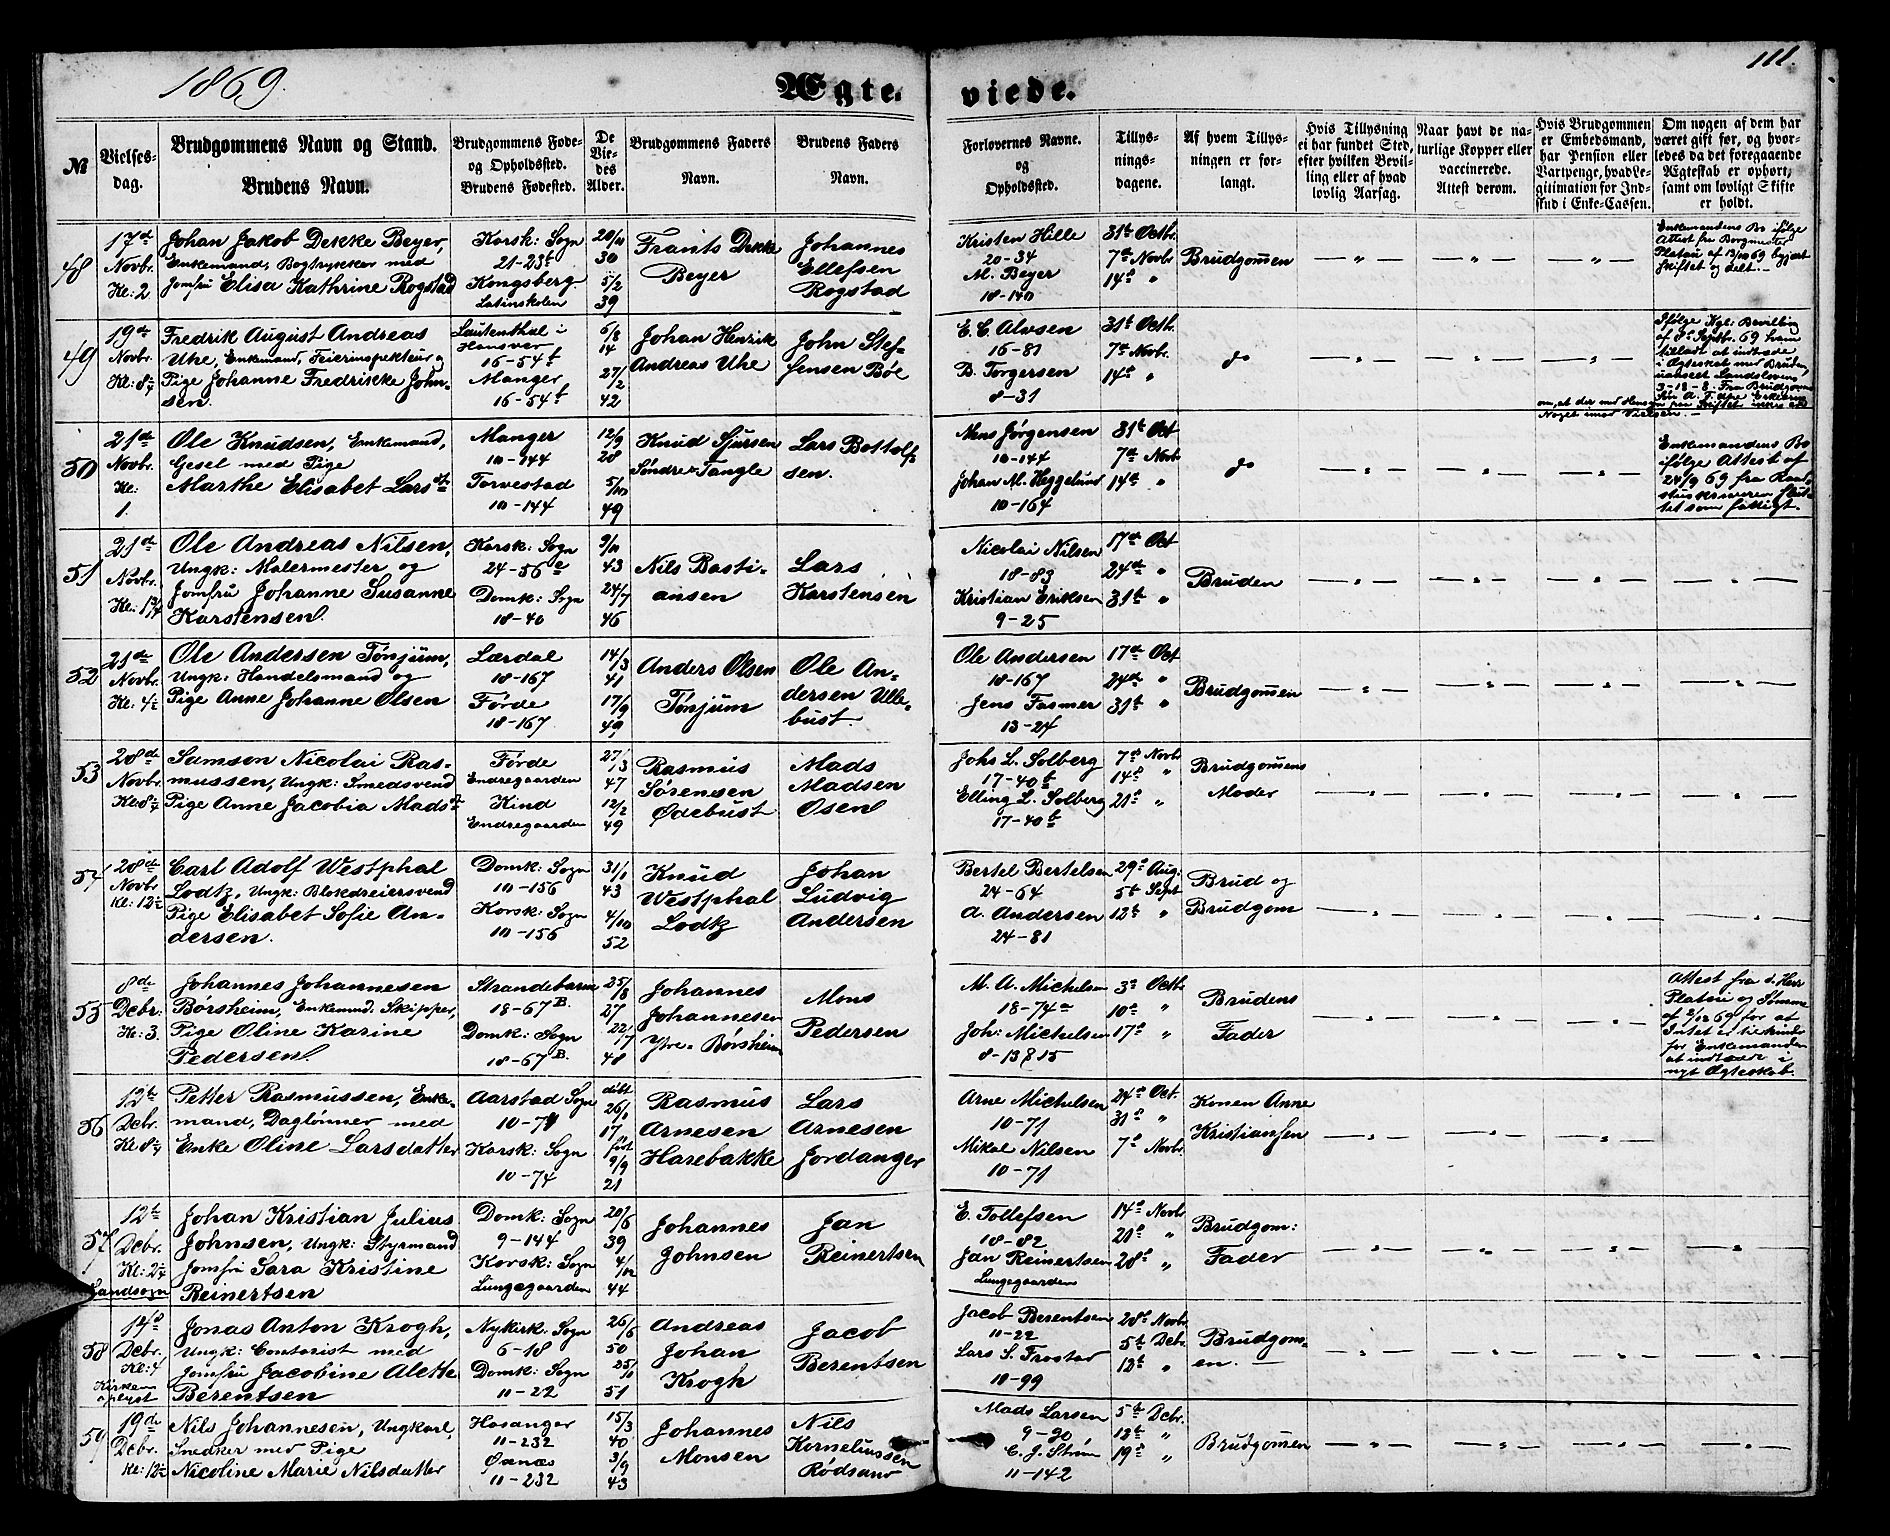 1869.
Ægte.
viede.
111.
№
Vielses-
dag.
Brudgommens Navn og Stand.
Brudens Navn.
Brudgommens Føde-
og Opholdssted.
Brudens Fødested.
De
Vie-
des
Alder.
Brudgommens Faders
Navn.
Brudens Faders
Navn.
Forlovernes Navne.
og
Opholdssted.
Tillys-
nings-
dagene.
Af hvem Tillys-
ningen er for-
langt.
Hvis Tillysning
ei har fundet Sted,
efter hvilken Bevil-
ling eller af hvad
lovlig Aarsag.
Naar havt de na-
turlige Kopper eller
vaccinerede.
Attest derom.
Hvis Brudgommen
er Embedsmand,
har Pension eller
Vartpenge, hvad Le-
gitimation for Ind-
skud i Enke-Cassen.
Om nogen af dem har
været gift før, og hvor-
ledes da det foregaaende
Ægteskab er ophørt,
samt om lovligt Skifte
er holdt.
48
17de
Novbr.
Kl: 2
Johan Jakob Dekke Beyer,
Enkemand, Bogtrykker med
Jomfru Elisa Kathrine Rogstad
Korsk: Sogn
21-23b
Kongsberg
Latinskolen
20/11
30
5/2
39
Frants Dekke
Beyer
Johannes
Ellefsen
Rogstad
Kristen Hille
20-34
M. Beyer
18-140
31te Octbr.
7de Novbr
14de "
Brudgommen
Enkemandens Bo ifølge
Attest fra Borgmester
Platou af 13/10 69 begjært
skiftet og delt.-
49
19de
Novbr.
Kl: 8½
Fredrik August Andreas
Uhe, Enkemand, Feierinspekteur og
Pige Johanne Fredrikke John-
sen.
Lautenthal i
Hanover
16-54f
Manger
16-54f
6/8
14
27/2
42
Johan Henrik
Andreas Uhe
John Stef-
fensen Bøe
E. C. Alvsen
16-81
B. Torgersen
8-31
31te Octbr.
7de Novbr.
14de "
do
Ifølge Kgl: Bevilling
af 8de Septbr. 69 ham
tilladt at indtræde
i Ægteskab med Bruden,
uanset Landslovens
3-18-8. Fra Brudgommens
50
21de
Novbr.
Kl:
1.
Ole Knudsen, Enkemand,
Gesel med Pige
Marthe Elisabet Larsdtr
Manger
10-144
Torvestad
10-144
12/9
28
5/10
49
Knud Sjursen
Søndre Tangle
Lars Bottolf-
sen.
Mons Jørgensen
10-144
Johan M. Heggelund
10-164
31te Oct
7de Novb
14de "
do
Enkemandens Bo
ifølge Attest af
24/9 69 fra Raad-
stuskriveren slut-
tet som fattigt.
51
21de
Novbr.
Kl: 1¾
Ole Andreas Nilsen,
Ungk: Malermester og
Jomfru Johanne Susanne
Karstensen.
Korsk: Sogn
24-56e
Domk: Sogn
18-40
9/11
43
24/7
46
Nils Basti-
ansen
Lars
Karstensen
Nicolai Nilsen
18-83
Kristian Eriksen
9-25
17de Oct
24de "
31te "
Bruden
52
21de
Novbr.
Kl: 4½
Ole Andersen Tønjum,
Ungk: Handelsmand og
Pige Anne Johanne Olsen
Lærdal
18-167
Førde
18-167
14/3
41
17/9
49
Anders Olsen
Tønjum
Ole An-
dersen Ulle-
bust.
Ole Andersen
18-167
Jens Fasmer
13-24
17de Oct
24de "
31te "
Brudgommen
53
28de
Novbr.
Kl: 8½
Samson Nicolai Ras-
mussen, Ungk: Smedsvend
Pige Anne Jacobia Madsdtr
Førde
Endregaarden
Kind
Endregaarden
27/3
47
12/2
49
Rasmus
Sørensen
Ødebust
Mads
Madsen
Osen
Johs L. Solberg
17-40b
Elling L. Solberg
17-40b
7de Novbr
14de "
21de "
Brudgommens
Moder
54
28de
Novbr
Kl: 12½
Carl Adolf Westphal
Lodtz, Ungk: Blokdreiersvend
Pige Elisabet Sofie An-
dersen.
Domk: Sogn
10-156
Korsk: Sogn
10-156
31/1
43
4/10
52
Knud
Westphal
Lodtz
Johan
Ludvig
Andersen
Bertel Bertelsen
24-64
A. Andersen
24-81
29de Aug:
5te Sept
12te "
Brud og
Brudgom
55
8de
Decbr:
Kl: 3.
Johannes Johannesen
Børsheim, Enkemd. Skipper,
Pige Oline Karine
Pedersen
Strandebarm
18-67B.
Domk: Sogn
18-67B.
25/8
27
22/7
48
Johannes
Johannesen
Ytre-Børsheim
Mons
Pedersen
M. A. Michelsen
18-74a
Joh: Michelsen
8-13&15
3de Octb
10de "
17de "
Brudens
Fader
Attest fra d. Herr
Platou og Sømme
af 2/12 69 for at
Intet er til Hinder
for Enkemanden
at indtræde i
nyt Ægteskab.
56
12te
Decbr.
Kl: 8½
Petter Rasmussen, Enke-
mand, Daglønner med
Enke Oline Larsdatter
Aarstad Sogn
10-71
Korsk: Sogn
10-74
døbt
26/1
17
født
9/9
21
Rasmus
Arnesen
Harebakke
Lars
Arnesen
Jordanger
Arne Michelsen
10-71
Mikal Nilsen
10-71
24de Oct.
31te "
7de Novbr.
Konen Anne
Kristiansen
57
12te
Decbr.
Kl: 2¼
Landsogn
Johan Kristian Julius
Johnsen, Ungk: Styrmand
Jomfru Sara Kristine
Reinertsen
Domk: Sogn
9-144
Korsk: Sogn
Lungegaarden
20/6
39
4/12
44
Johannes
Johnsen
Jan
Reinertsen
E. Tollefsen
18-82
Jan Reinertsen
Lungegaarden
14de Novbr
21de "
28de "
Brudgom:
Fader
58
14de
Decbr.
Kl: 4
Kirken
oplyst
Jonas Anton Krogh,
Ungk: Contorist med
Jomfru Jacobine Alette
Berentsen
Nykirk: Sogn
6-18
Domk: Sogn
11-22
26/6
50
25/1
51
Andreas
Johan
Krogh
Jacob
Berentsen
Jacob Berentsen
11-22
Lars S. Frostad
10-99
28de Novbr.
5te Decbr.
12te "
Brudgom-
en.
59
19de
Decbr.
Kl: 12½
Nils Johannesen, Ungkarl,
Snedker med Pige
Nicoline Marie Nilsdatter
Hosanger
11-232
Øxnæs
11-232
15/3
40
3/9
43
Johannes
Monsen
Nils
Korneliussen
Rødsand
Mads Larsen
9-20
C. J. Strøm
11-142
5te Decbr.
12te "
19de "
Brudgommen